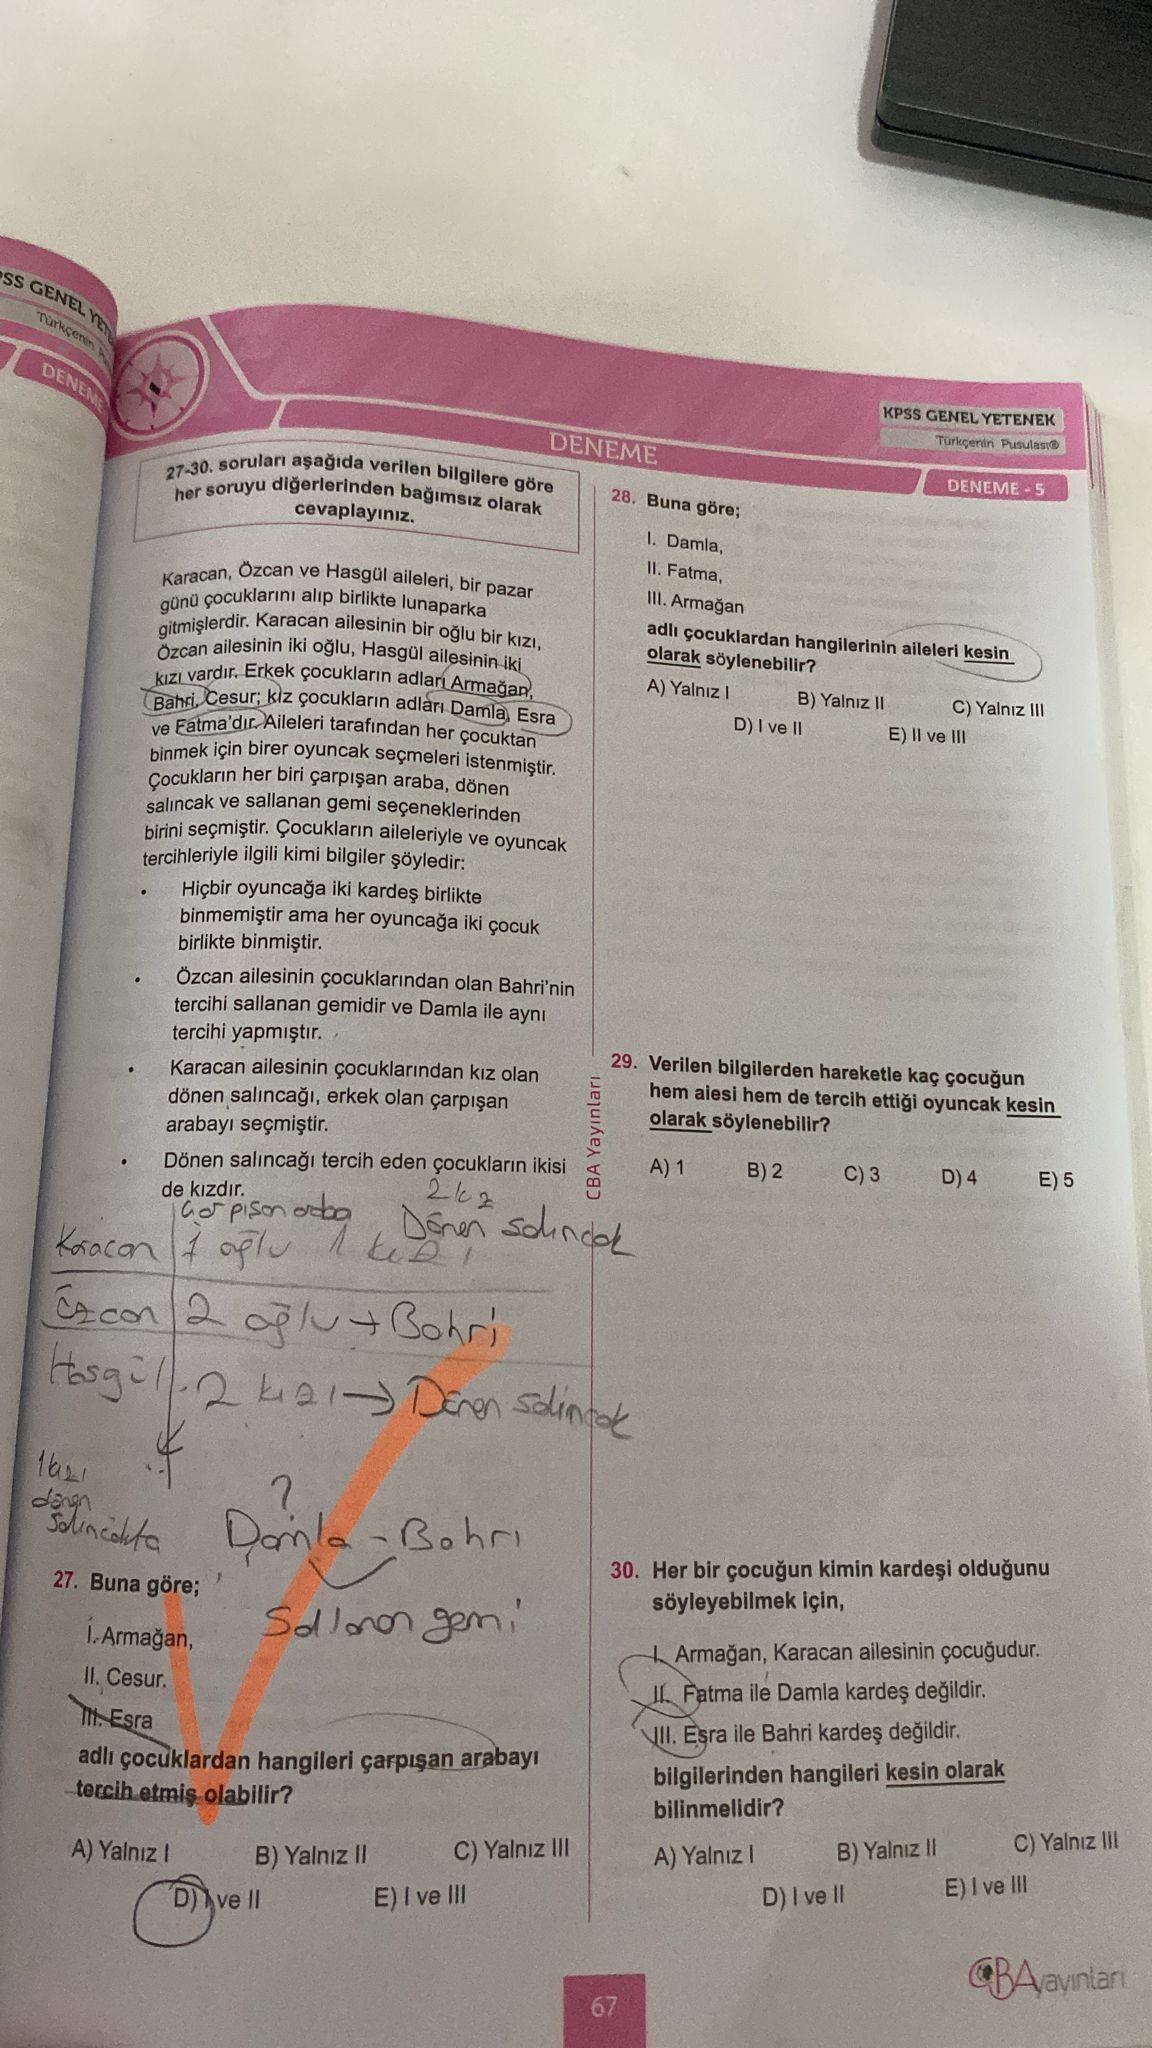 SS GENEL YET
Türkçenin P
DENEME
DENEME
KPSS GENEL YETENEK
Türkçenin Pusulası®
DENEME - 5
27-30. soruları aşağıda verilen bilgilere göre
her soruyu diğerlerinden bağımsız olarak
cevaplayınız.
Karacan, Özcan ve Hasgül aileleri, bir pazar
günü çocuklarını alıp birlikte lunaparka
gitmişlerdir. Karacan ailesinin bir oğlu bir kızı,
Özcan ailesinin iki oğlu, Hasgül ailesinin iki
kızı vardır. Erkek çocukların adları Armağan,
Bahri, Cesur; kız çocukların adları Damla, Esra
ve Fatma'dır. Aileleri tarafından her çocuktan
binmek için birer oyuncak seçmeleri istenmiştir.
Çocukların her biri çarpışan araba, dönen
salıncak ve sallanan gemi seçeneklerinden
birini seçmiştir. Çocukların aileleriyle ve oyuncak
tercihleriyle ilgili kimi bilgiler şöyledir:
• Hiçbir oyuncağa iki kardeş birlikte
binmemiştir ama her oyuncağa iki çocuk
birlikte binmiştir.
• Özcan ailesinin çocuklarından olan Bahri'nin
tercihi sallanan gemidir ve Damla ile aynı
tercihi yapmıştır.
• Karacan ailesinin çocuklarından kız olan
dönen salıncağı, erkek olan çarpışan
arabayı seçmiştir.
• Dönen salıncağı tercih eden çocukların ikisi
de kızdır.
Çarpışan araba
2 kız
Dönen salıncak
Karacan 1 oğlu 1 kızı
Özcan 2 oğlu → Bahri
Hasgül 2 kızı → Dönen salıncak
1 kızı
dönen
salıncakta
?
Damla - Bahri
Sallanan gemi
27. Buna göre;
I. Armağan,
II. Cesur.
III. Esra
adlı çocuklardan hangileri çarpışan arabayı
tercih etmiş olabilir?
A) Yalnız I B) Yalnız II C) Yalnız III
D) I ve II E) I ve III
28. Buna göre;
I. Damla,
II. Fatma,
III. Armağan
adlı çocuklardan hangilerinin aileleri kesin
olarak söylenebilir?
A) Yalnız I B) Yalnız II C) Yalnız III
D) I ve II E) II ve III
29. Verilen bilgilerden hareketle kaç çocuğun
hem aiesi hem de tercih ettiği oyuncak kesin
olarak söylenebilir?
A) 1 B) 2 C) 3 D) 4 E) 5
CBA Yayınları
30. Her bir çocuğun kimin kardeşi olduğunu
söyleyebilmek için,
I. Armağan, Karacan ailesinin çocuğudur.
II. Fatma ile Damla kardeş değildir.
III. Esra ile Bahri kardeş değildir.
bilgilerinden hangileri kesin olarak
bilinmelidir?
A) Yalnız I B) Yalnız II C) Yalnız III
D) I ve II E) I ve III
67
CBAyayınları